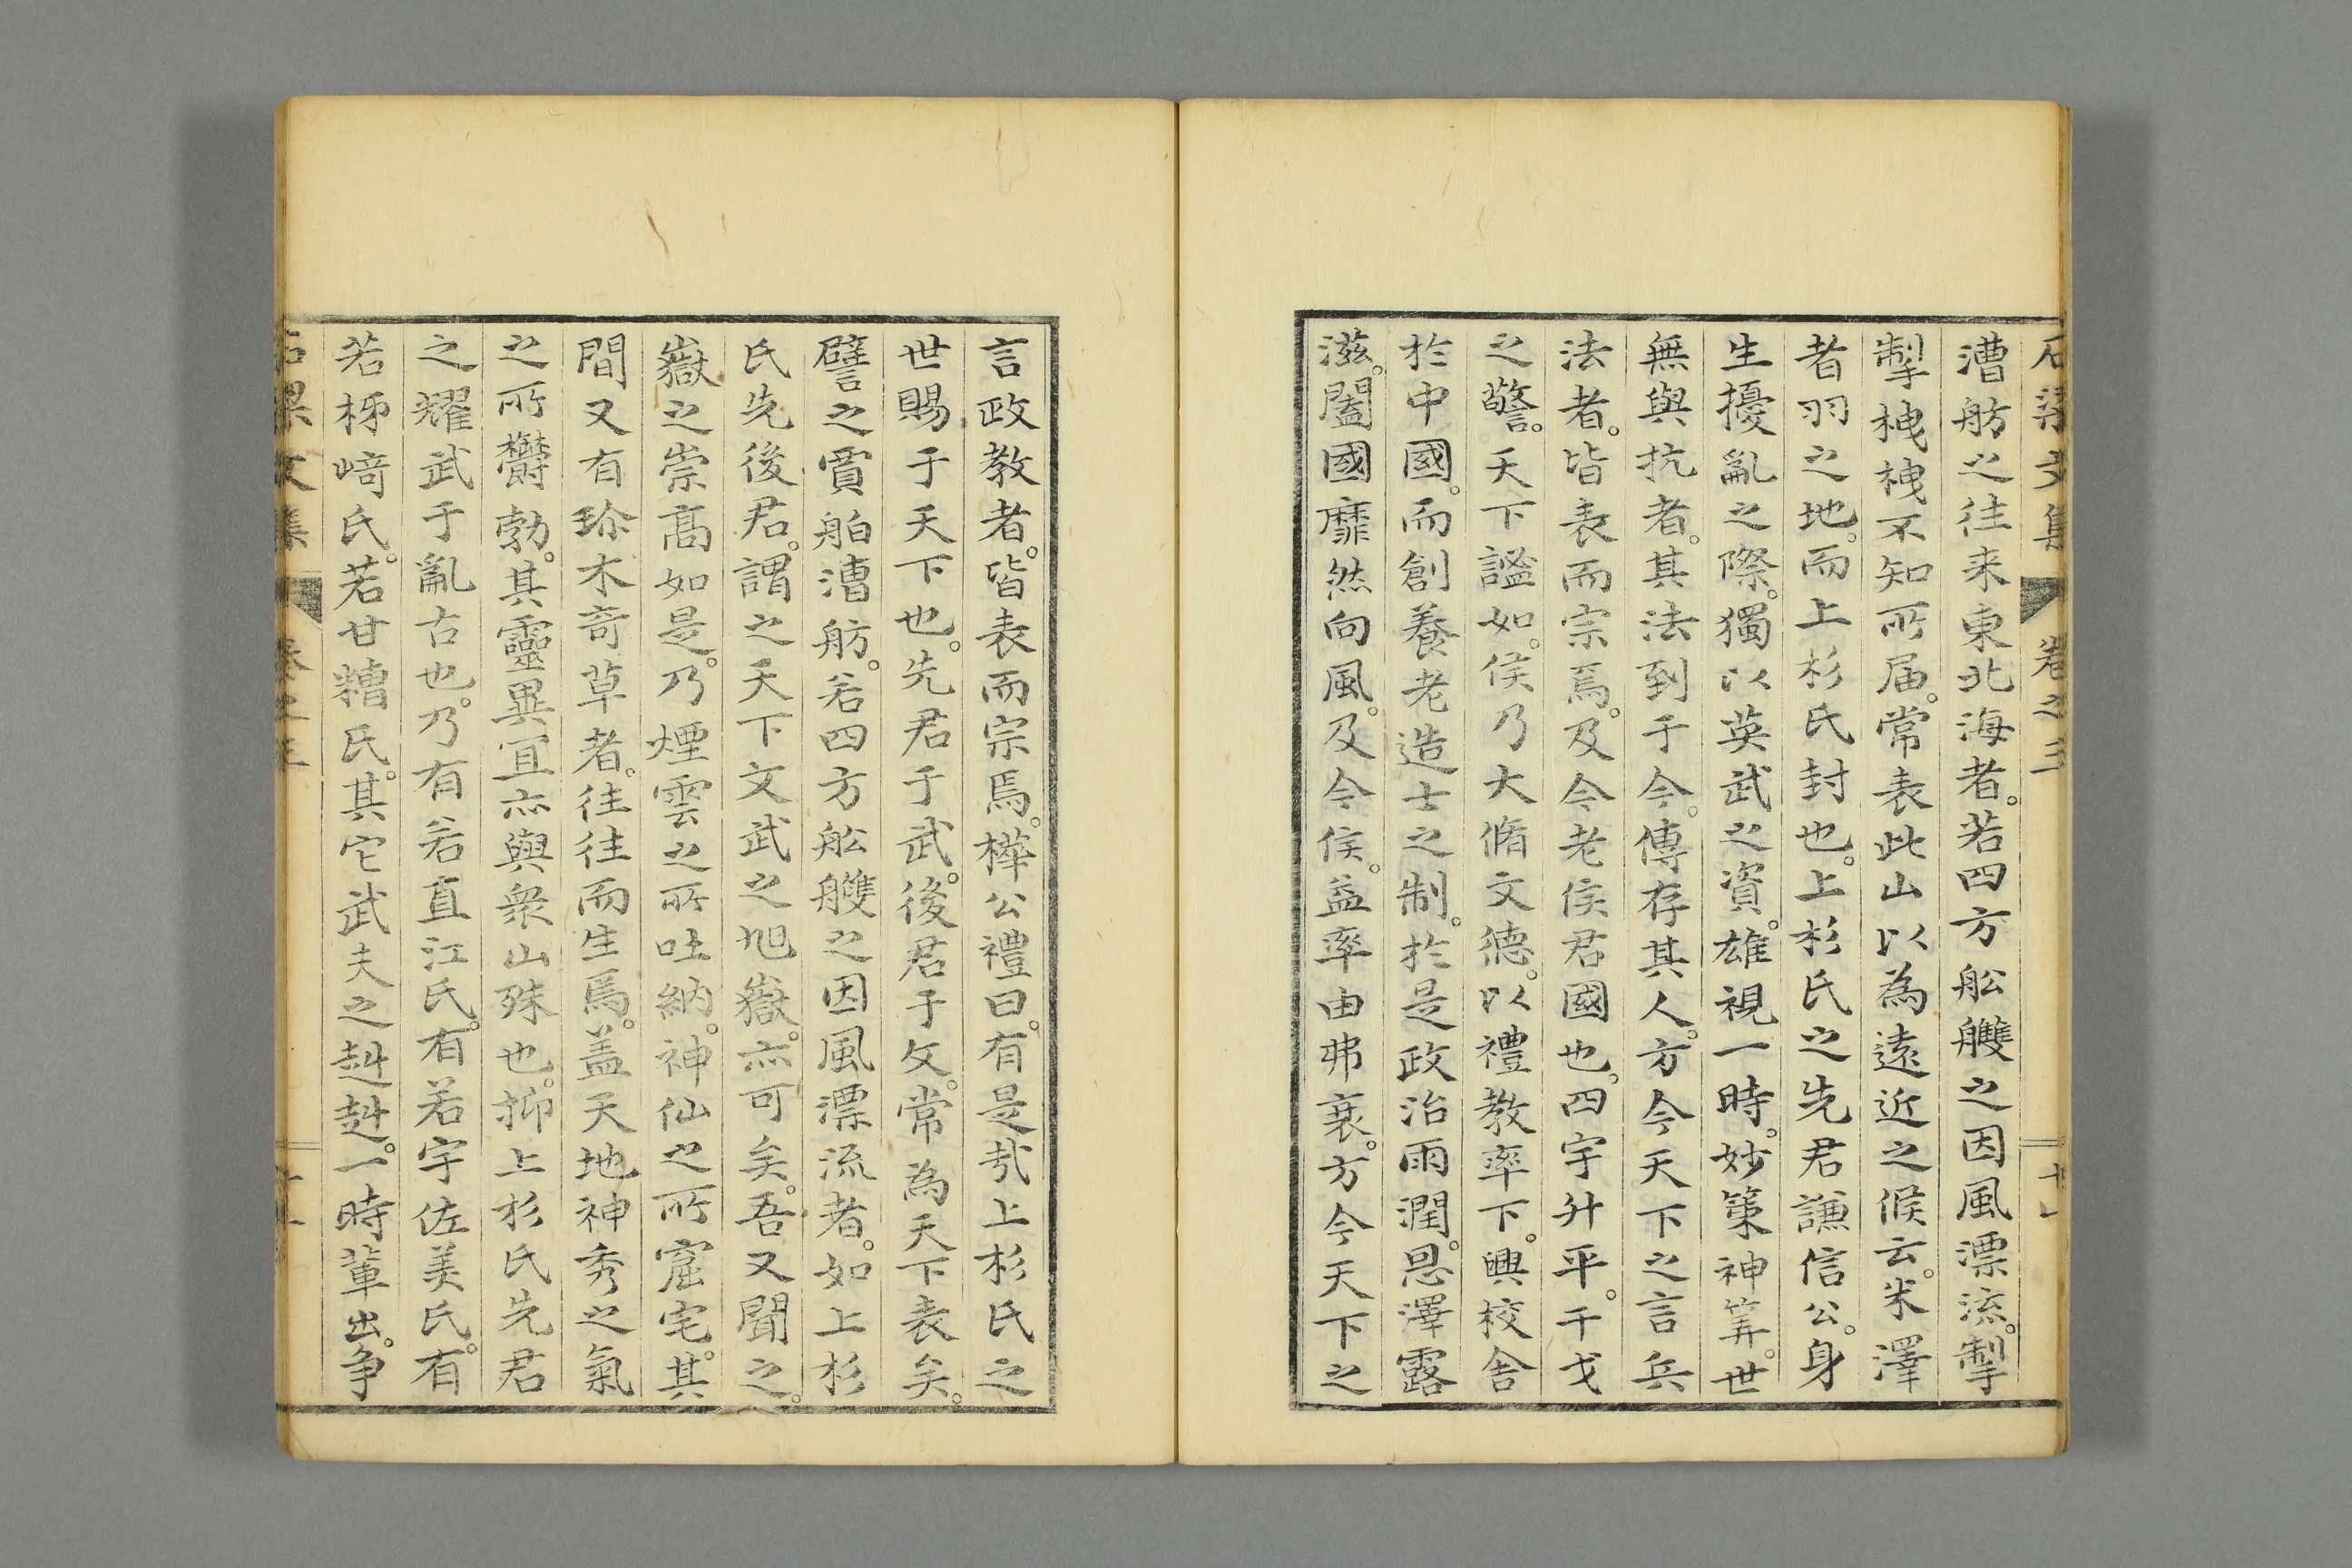 石梁文集 卷之三
漕舫之往来東北海者。若四方舩艭之因風漂流。掣
掣栧栧不知所届。常表此山以為遠近之候云。米澤
者羽之地。而上杉氏封也。上杉氏之先君謙信公。身
生擾亂之際。獨以英武之資。雄視一時。妙策神筭。世
無與抗者。其法到于今。傳存其人。方今天下之言兵
法者。皆表而宗焉。及今老侯君國也。四宇升平。干戈
之警。天下謐如。侯乃大脩文德。以禮教率下。興校舎
於中國。而創養老造士之制。於是政治雨潤。恩澤露
滋。闔國靡然向風。及今侯。益率由弗衰。方今天下之
言政教者。皆表而宗焉。樺公禮曰。有是㢤上杉氏之
世賜于天下也。先君于武。後君于文。常為天下表矣。
譬之賈舶漕舫。若四方舩艭之因風漂流者。如上杉
氏先後君。謂之天下文武之旭嶽。亦可矣。吾又聞之。
嶽之崇高如是。乃煙雲之所吐納。神仙之所窟宅。其
間又有珍木奇草者。往往而生焉。盖天地神秀之氣
之所欝勃。其靈異冝亦與衆山殊也。抑上杉氏先君
之耀武于亂古也。乃有若直江氏。有若宇佐美氏。有
若柹﨑氏。若甘糟氏。其它武夫之赳赳。一時輩出。争
石梁文集 卷之三